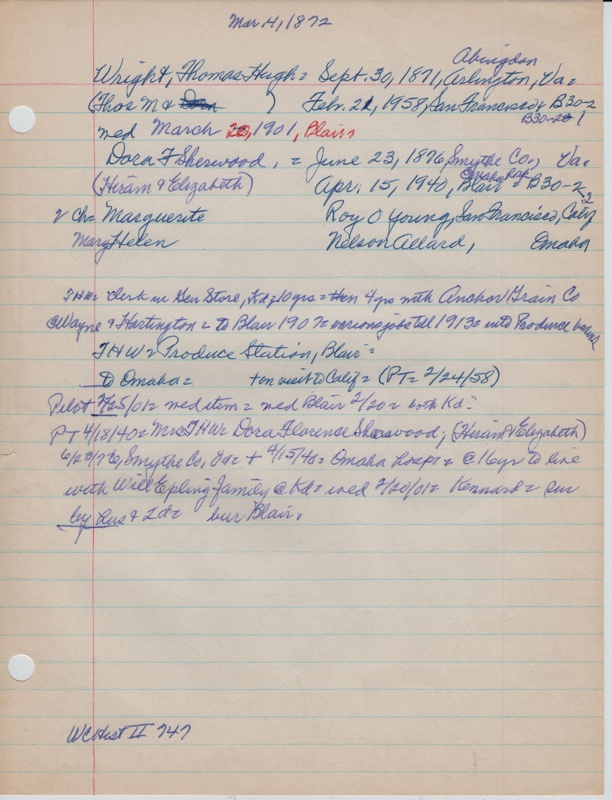 Mar. 4, 1872
Abingdon
Wright, Thomas Hugh = Sept. 30, 1871, Arlington, Va =
(Thos M & Dora ) Febr. 21, 1958, San Francisco & B30-2
B30-2 1
wed March 20, 1901, Blair,
Dora F Sherwood, = June 23, 1876, Smythe Co, Va =
(Hiram & Elizabeth) Apr. 15, 1940, Blair & B30-2
Omaha hosp 2
2 ch = Marguerite Roy O Young, San Francisco, Calif
Mary Helen Nelson Allard, Omaha
THW = Clerk in Gen Store, Kd = 10 yrs = then 4 yrs with Anchor Grain Co
@ Wayne & Hartington = to Blair 1907 = various jobs till 1913 = into Produce
THW = Produce Station, Blair =
D Omaha = + on visit to Calif = (PT = 2/24/58)
Pilot 2/25/01 = wed item = wed Blair 2/20 = both Kd =
PT 4/18/40 = Mrs THW Dora Florence Sherwood, (Hiram & Elizabeth)
6/23/76, Smythe Co, Va = + 4/15/40 = Omaha hosp = @ 16 yr to live
with Will Epling family @ Kd = wed 2/20/01 = Kennard = sur
by hus & 2 d = bur Blair,
WC Hist II 747